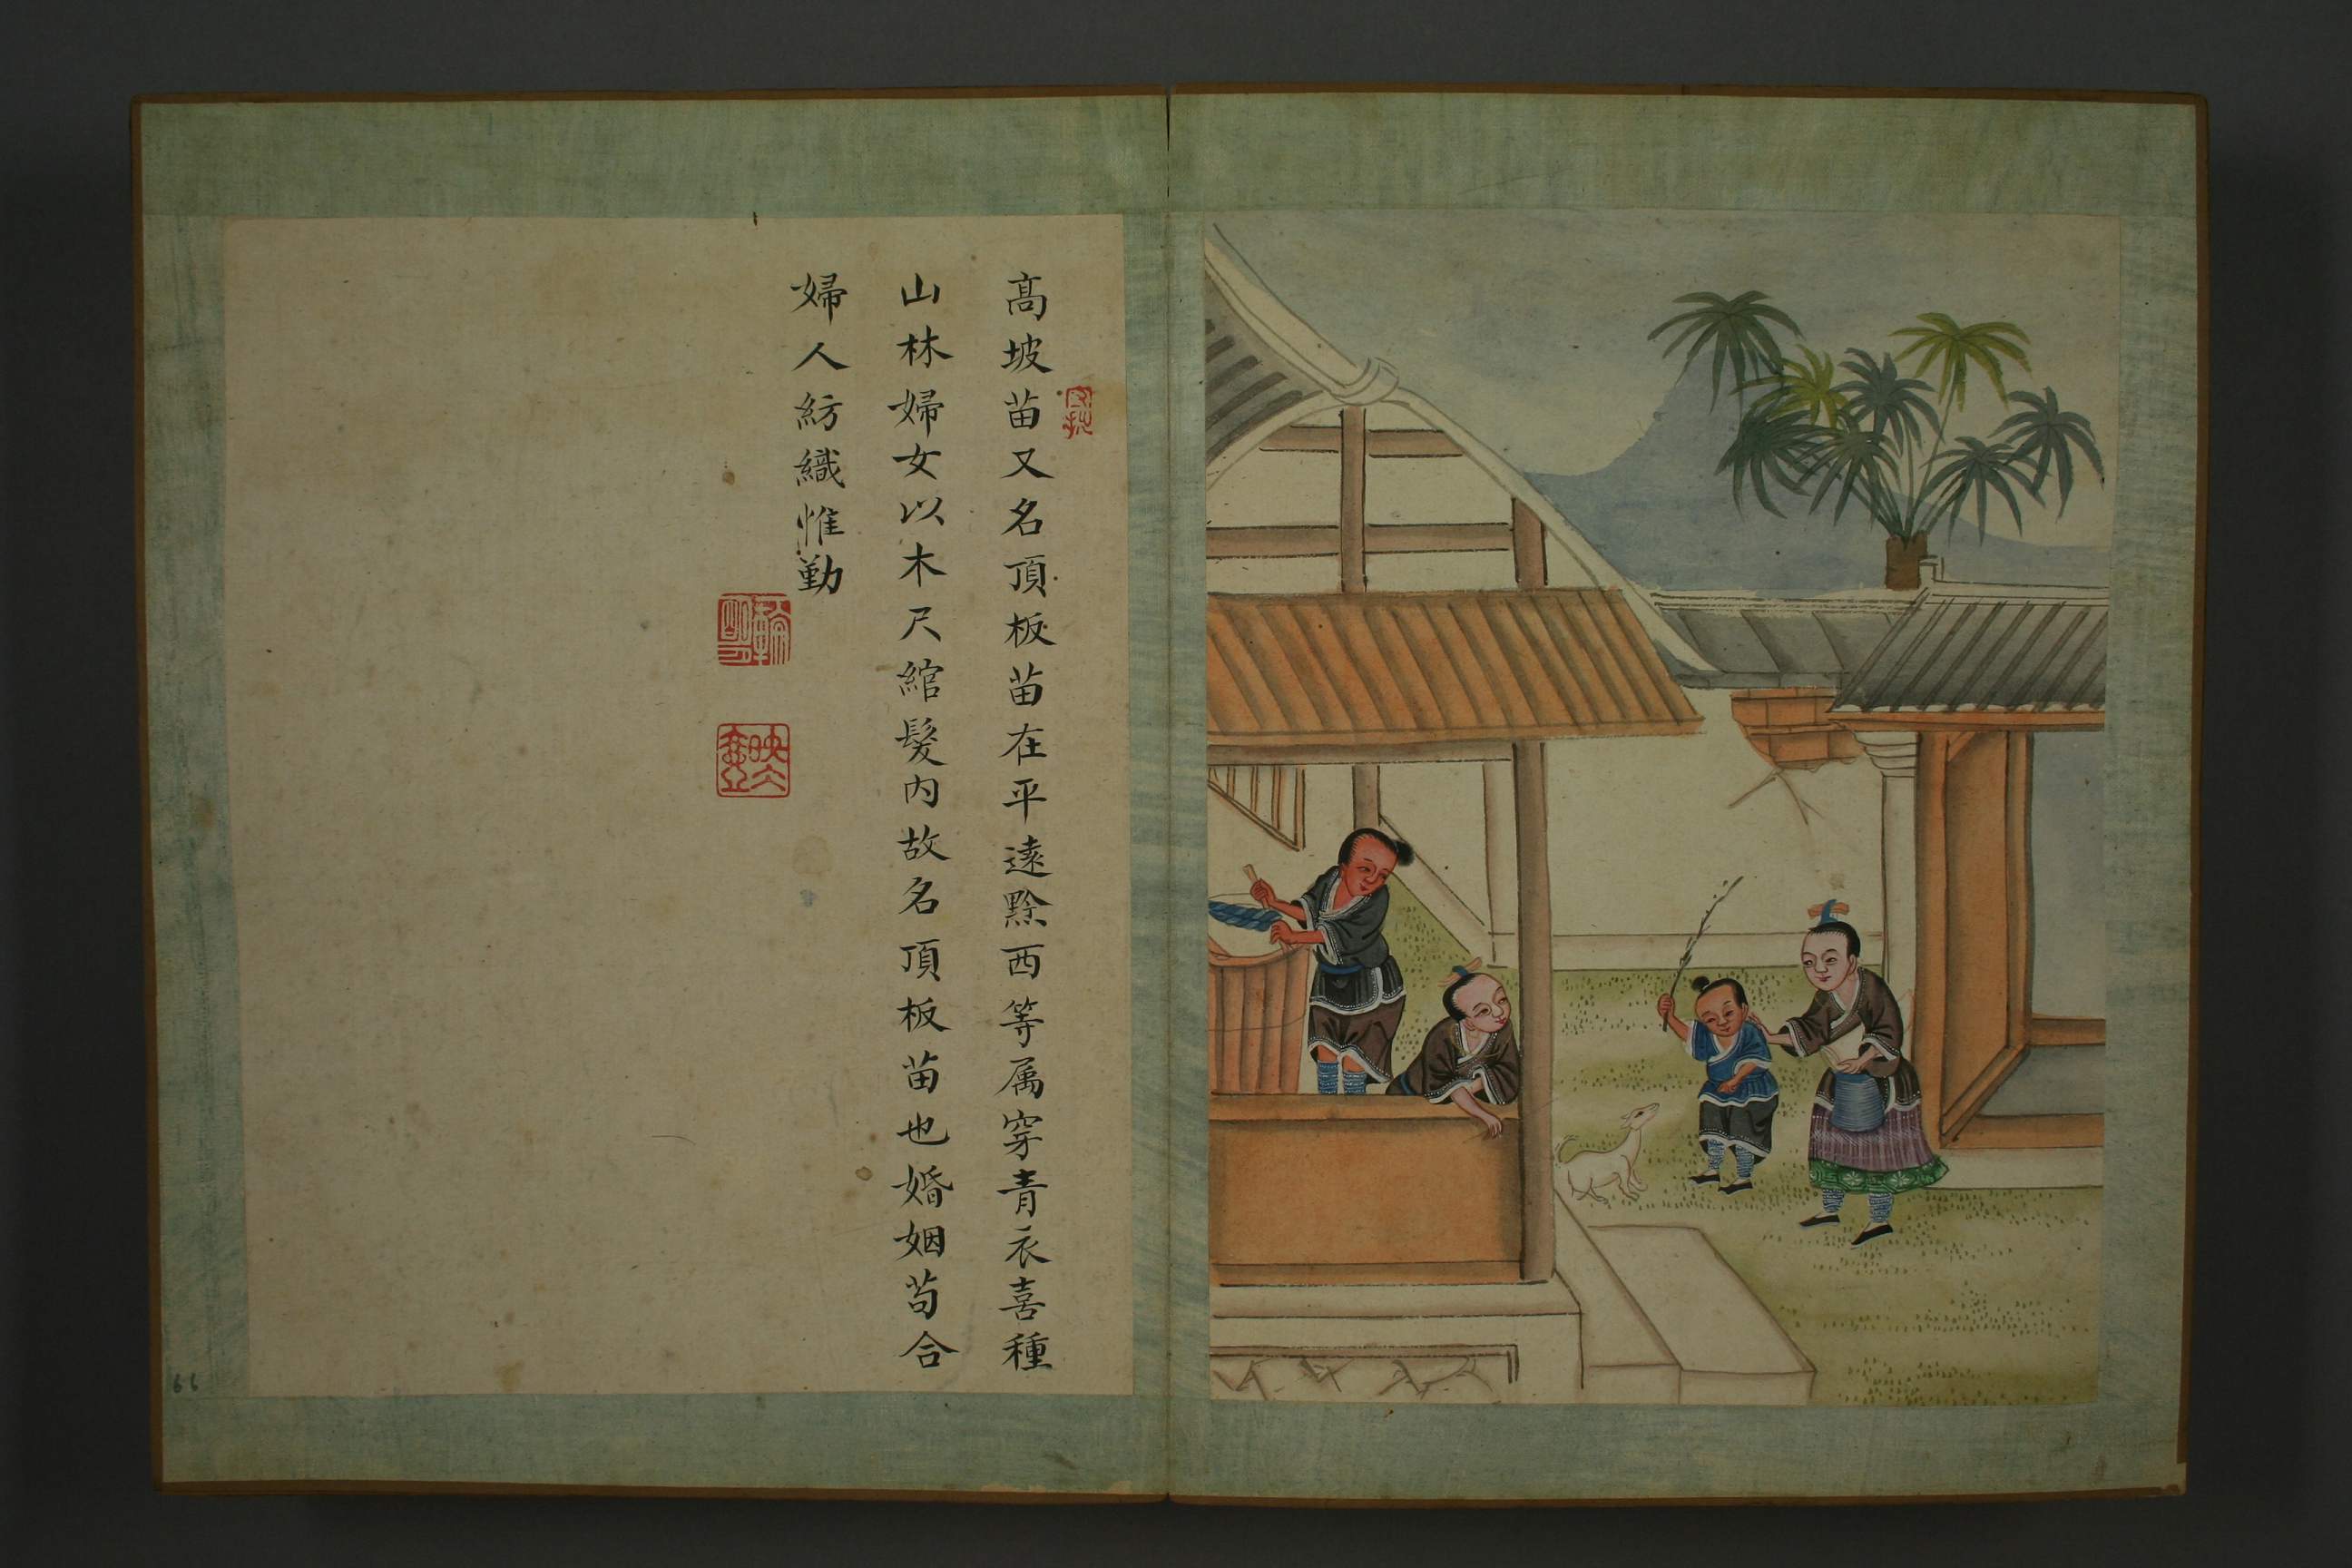 高坡苗又名頂板苗在平遠黔西等属穿青衣喜種
山林婦女以木尺綰髮内故名頂板苗也婚姻苟合
婦人紡織惟勤
66